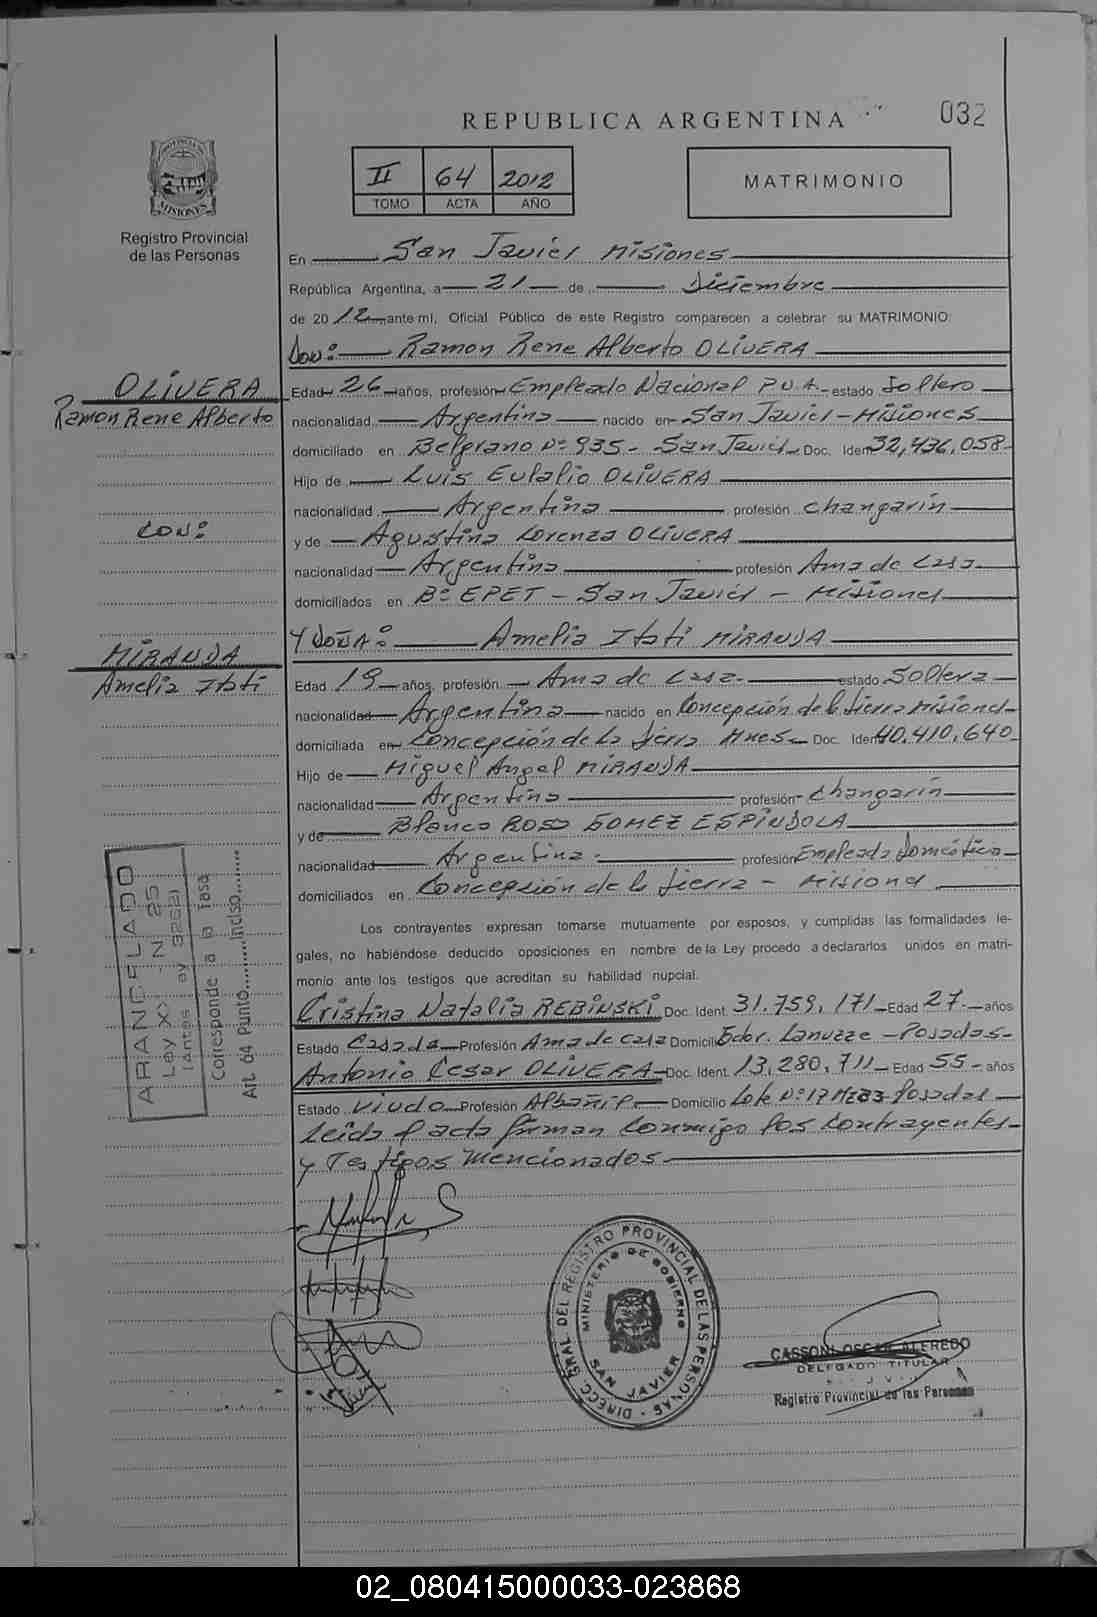 REPUBLICA ARGENTINA
032
PROVINCIA DE
MISIONES
Registro Provincial
de las Personas
II 64 2012
TOMO ACTA AÑO
MATRIMONIO
En San Javier Misiones
República Argentina, a 21 de Diciembre
de 2012 ante mí, Oficial Público de este Registro comparecen a celebrar su MATRIMONIO:
DON: Ramon Rene Alberto OLIVERA
OLIVERA
Ramon Rene Alberto
Edad 26 años, profesión Empleado Nacional P.N.A. estado Soltero
nacionalidad Argentina nacido en San Javier - Misiones
domiciliado en Belgrano Nº 935 - San Javier Doc. Iden 32,436,058
Hijo de Luis Eulalio OLIVERA
nacionalidad Argentina profesión Changarín
CON:
y de Agustina Lorenza OLIVERA
nacionalidad Argentina profesión Ama de Casa
domiciliados en Bº EPET - San Javier - Misiones
Y DOÑA: Amelia Itati MIRANDA
MIRANDA
Amelia Itati
Edad 19 años, profesión Ama de Casa - estado Soltera
nacionalidad Argentina nacido en Concepción de la Sierra Misiones
domiciliada en Concepción de la Sierra Mnes Doc. Iden 40,410,640
Hijo de Miguel Angel MIRANDA
nacionalidad Argentina profesión Changarín
y de Blanca Rosa GOMEZ ESPINDOLA
nacionalidad Argentina - profesión Empleada Doméstica
domiciliados en Concepción de la Sierra - Misiones
Los contrayentes expresan tomarse mutuamente por esposos, y cumplidas las formalidades le-
gales, no habiéndose deducido oposiciones en nombre de la Ley procedo a declararlos unidos en matri-
monio ante los testigos que acreditan su habilidad nupcial.
Cristina Natalia REBINSKI Doc. Ident. 31.759,171 Edad 27 años
Estado Casada Profesión Ama de Casa Domicilio Gdor. Lanusse - Posadas
Antonio Cesar OLIVERA Doc. Ident. 13,280,711 Edad 55 años
Estado Viudo Profesión Albañil Domicilio Lote Nº 17 Mz 83 Posadas
Leída el acta firman conmigo los contrayentes
y Testigos mencionados
ARANCELADO
Ley X> - N 25
Corresponde a la Tasa
Art. 64 Punto..........Inciso........
DIRECC. GRAL. DEL REGISTRO PROVINCIAL DE LAS PERSONAS
MINISTERIO DE GOBIERNO
SAN JAVIER
CASSONI OSCAR ALFREDO
DELEGADO TITULAR
Registro Provincial de las Personas
02_080415000033-023868